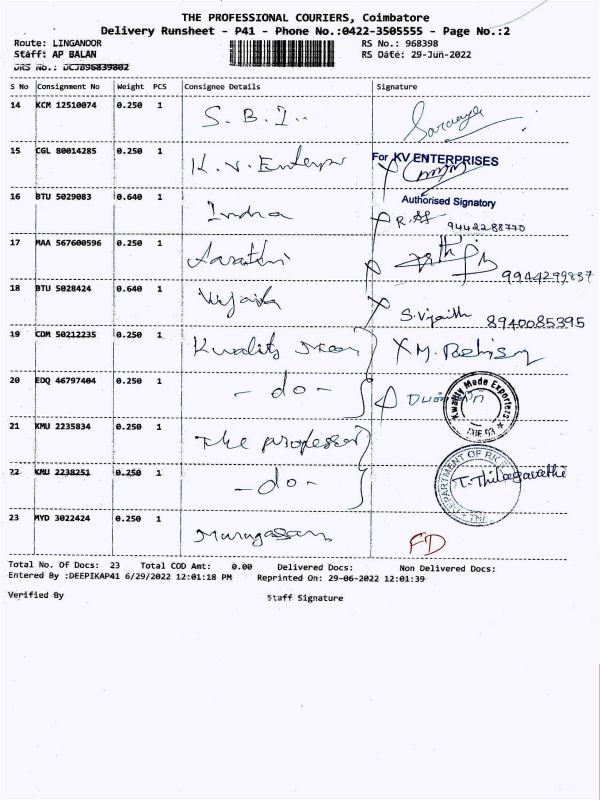 THE PROFESSIONAL COURIERS, Coimbatore
Delivery Runsheet - P41 - Phone No.:0422-3505555 - Page No.:2
Route: LINGANOOR RS No.: 968398
Staff: AP BALAN RS Date: 29-Jun-2022
DRS No.: DCJB96839802
S No Consignment No Weight PCS Consignee Details Signature
14 KCM 12510074 0.250 1 S. B. I..
15 CGL 80014285 0.250 1 K. V. Enterpr For KV ENTERPRISES
Authorised Signatory
16 BTU 5029083 0.640 1 Indra 9442288770
17 MAA 567600596 0.250 1 9944299837
18 BTU 5028424 0.640 1 S. Vijaith 8940085395
19 CDM 50212235 0.250 1 Kwality X M.
20 EDQ 46797404 0.250 1 - do - Kwality Made Exporters
21 KMU 2235834 0.250 1 The professor
22 KMU 2238251 0.250 1 - do - DEPARTMENT OF T. Thilagavathi
23 MYD 3022424 0.250 1 Murugasan FD
Total No. Of Docs: 23 Total COD Amt: 0.00 Delivered Docs: Non Delivered Docs:
Entered By :DEEPIKAP41 6/29/2022 12:01:18 PM Reprinted On: 29-06-2022 12:01:39
Verified By Staff Signature